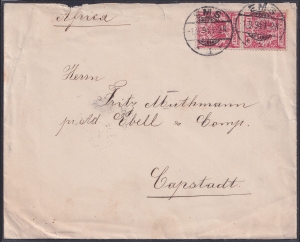 Africa
EMS
EMS
Herrn
Fritz Muthmann
p. ad Ebell & Comp.
Capstadt.